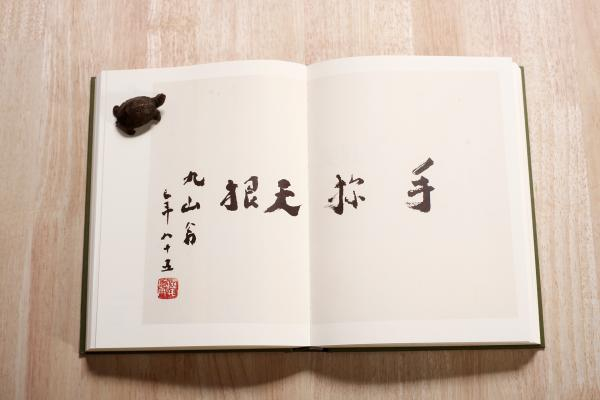 手探天根
九山翁
年八十五